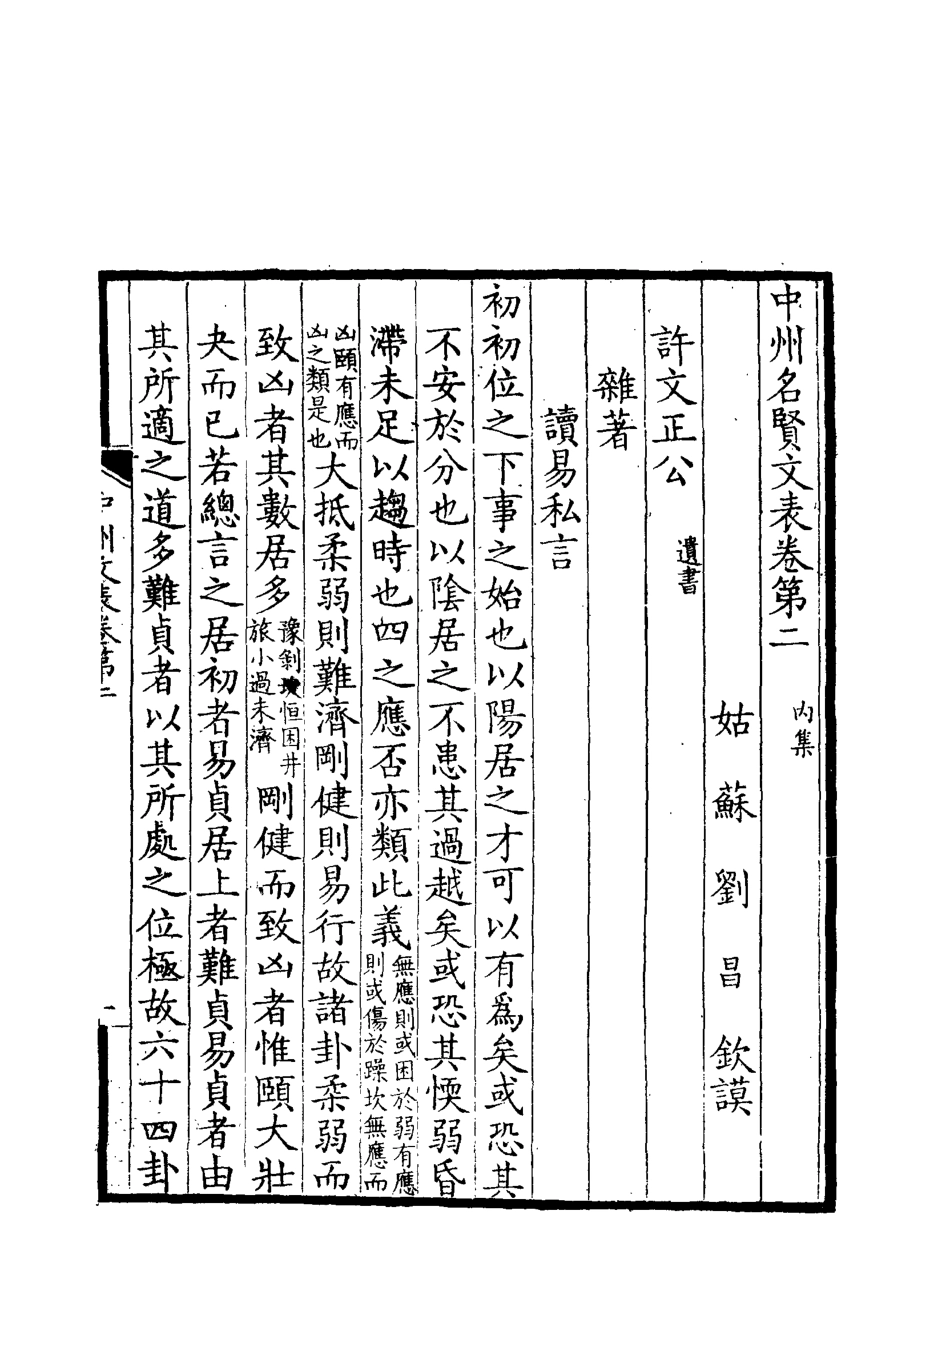 中州名賢文表卷第二 內集
姑蘇劉昌欽謨
許文正公 遺書
雜著
讀易私言
初初位之下事之始也以陽居之才可以有爲矣或恐其
不安於分也以陰居之不患其過越矣或恐其愞弱昏
滯未足以趨時也四之應否亦類此義無應則或困於弱有應則或傷於躁坎無應而
凶頤有應而凶之類是也大抵柔弱則難濟剛健則易行故諸卦柔弱而
致凶者其數居多豫剝恒困井旅小過未濟剛健而致凶者惟頤大壯
夬而已若總言之居初者易貞居上者難貞易貞者由
其所適之道多難貞者以其所處之位極故六十四卦
中州文表卷第二
一